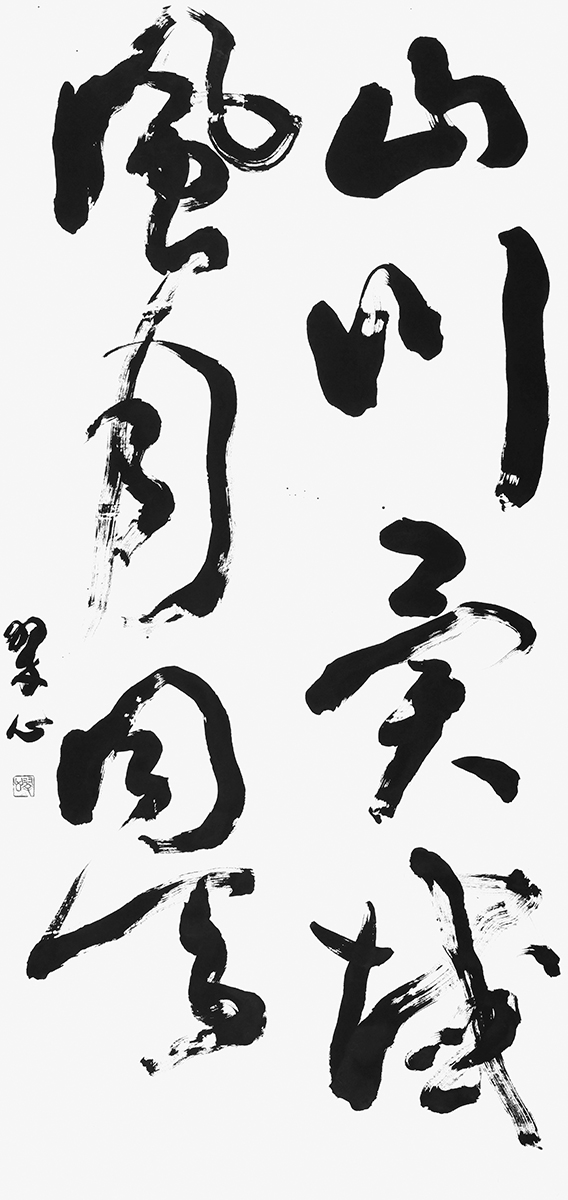 山川異域
風月同天
翠心